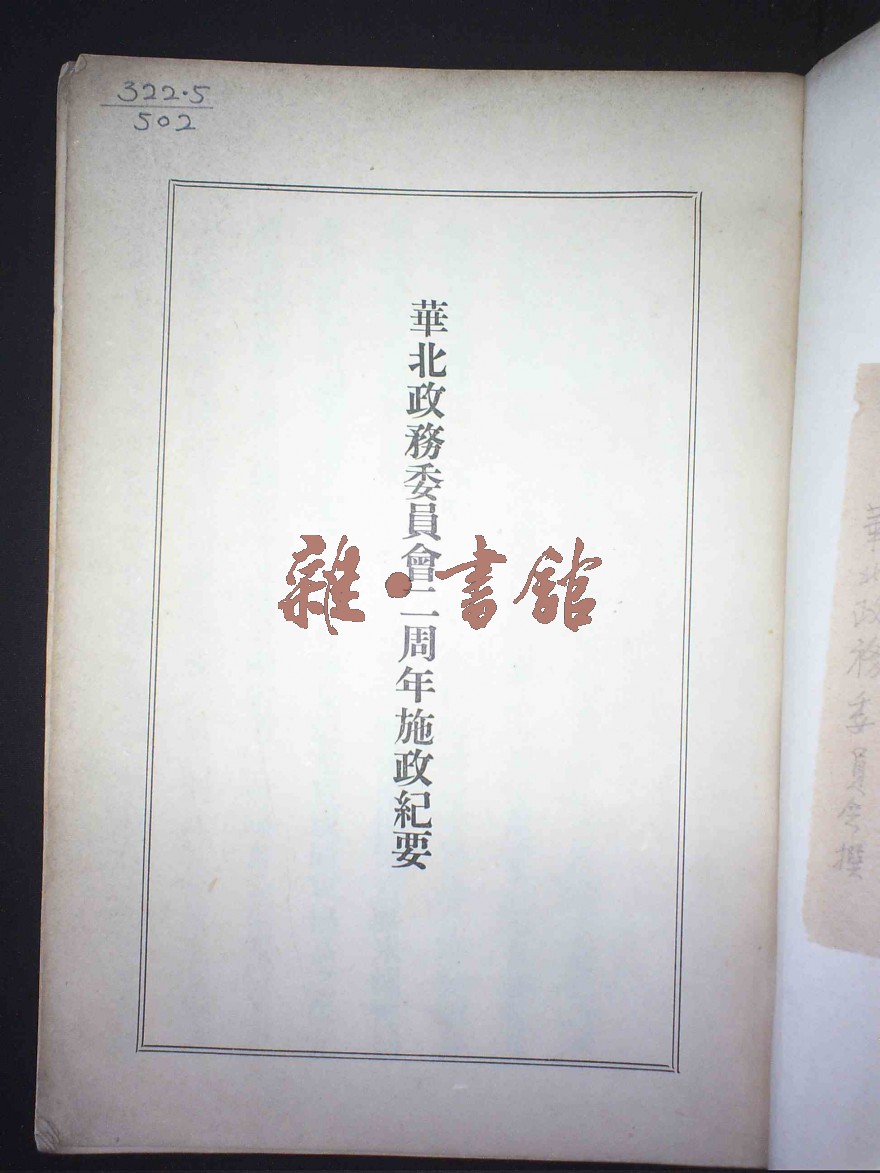 322.5
502
華北政務委員會二周年施政紀要
雜·書館
華北政務委員会撰